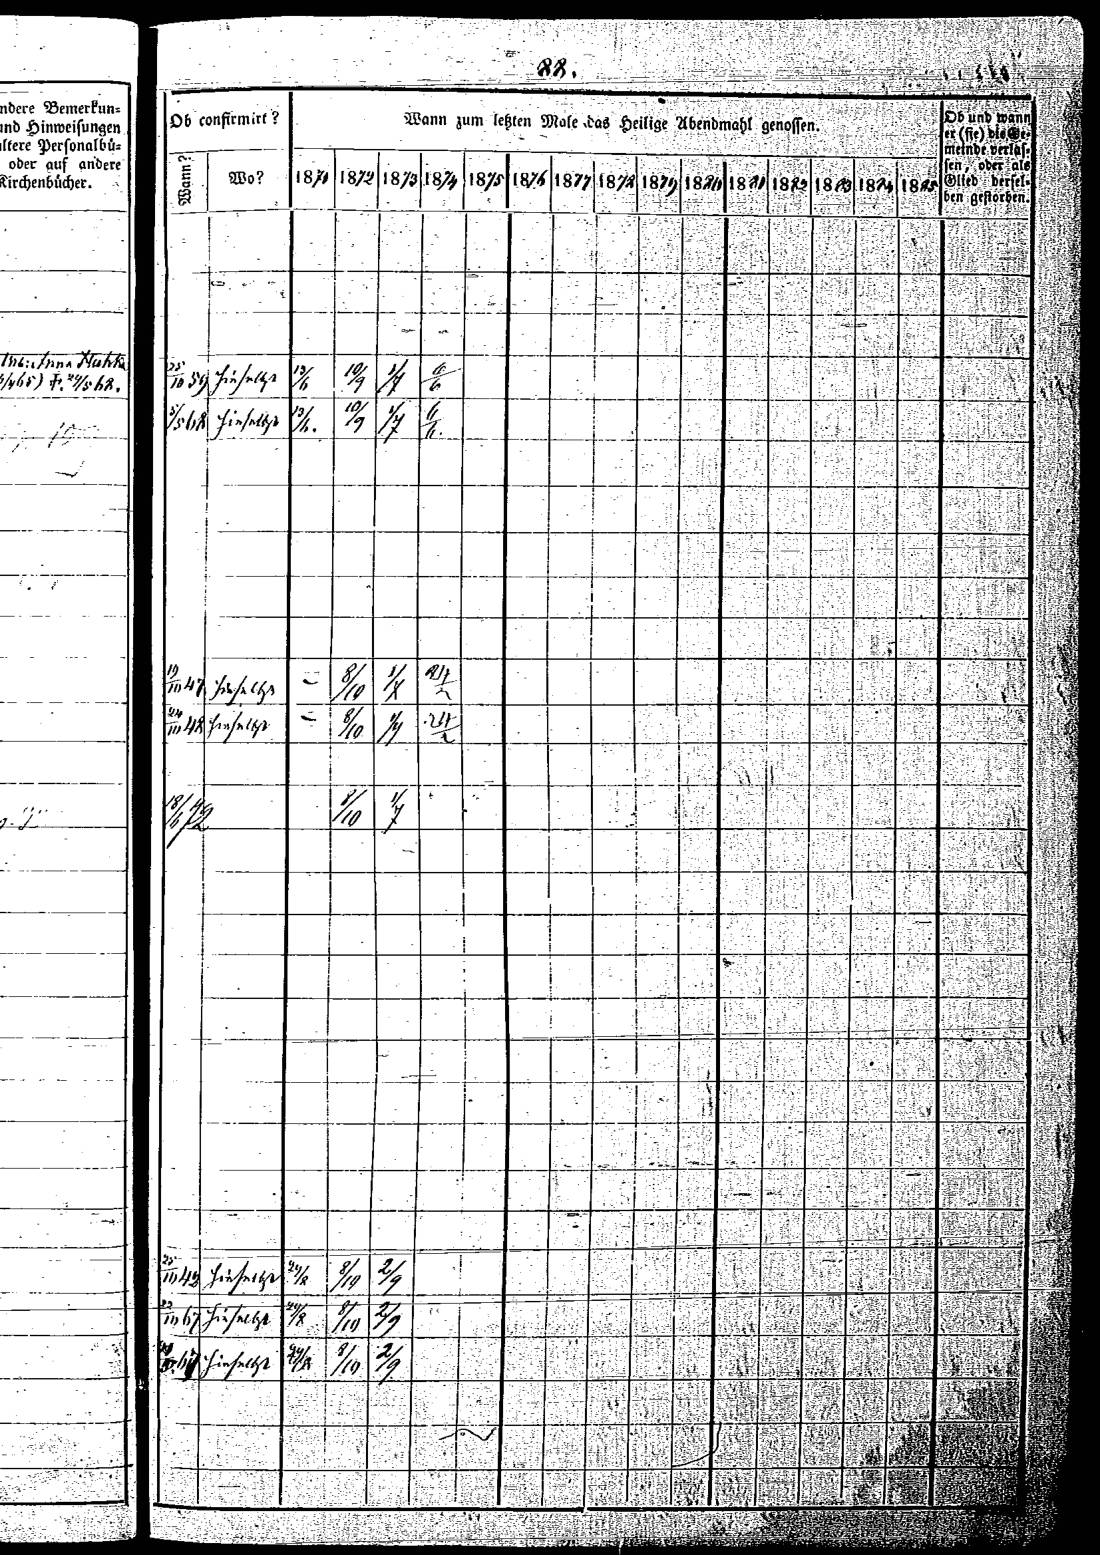 88.
ndere Bemerkun=
und Hinweisungen
ltere Personalbü=
oder auf andere
Kirchenbücher.
Ob confirmirt?
Wann?
Wo?
Wann zum letzten Male das Heilige Abendmahl genossen.
1871 1872 1873 1874 1875 1876 1877 1878 1879 1880 1881 1882 1883 1884 1885
Ob und wann
er (sie) die Ge=
meinde verlas=
sen, oder als
Glied dersel=
ben gestorben.
Anna
25/10 59 hieselbst 13/6 10/9 1/7 6/6
5/5 68 hieselbst 13/6. 10/9 1/7 6/6.
19/10 47 hieselbst – 8/10 1/7
24/10 48 hieselbst – 8/10 1/7
18/6 72 8/10 1/7
25/10 43 hieselbst 29/8 8/10 2/9
67 hieselbst 29/8 8/10 2/9
67 hieselbst 29/8 8/10 2/9